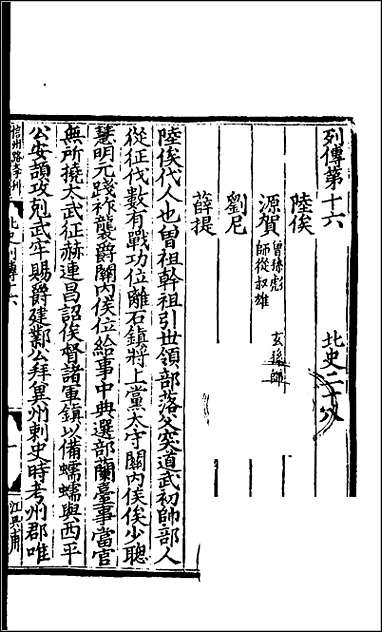 列傳第十六　北史二十八
陸俟
源賀 曾孫彪 玄孫師
師從叔雄
劉尼
薛提
陸俟代人也曾祖幹祖引世領部落父突道武初帥部人
從征伐數有戰功位離石鎮將上黨太守關內侯俟少聰
慧明元踐祚襲爵關內侯位給事中典選部蘭臺事當官
無所撓太武征赫連昌詔俟督諸軍鎮以備蠕蠕與西平
公安頡攻剋武牢賜爵建鄴公拜冀州刺史時考州郡唯
信州路學刊
北史列傳十六
一
江興甫